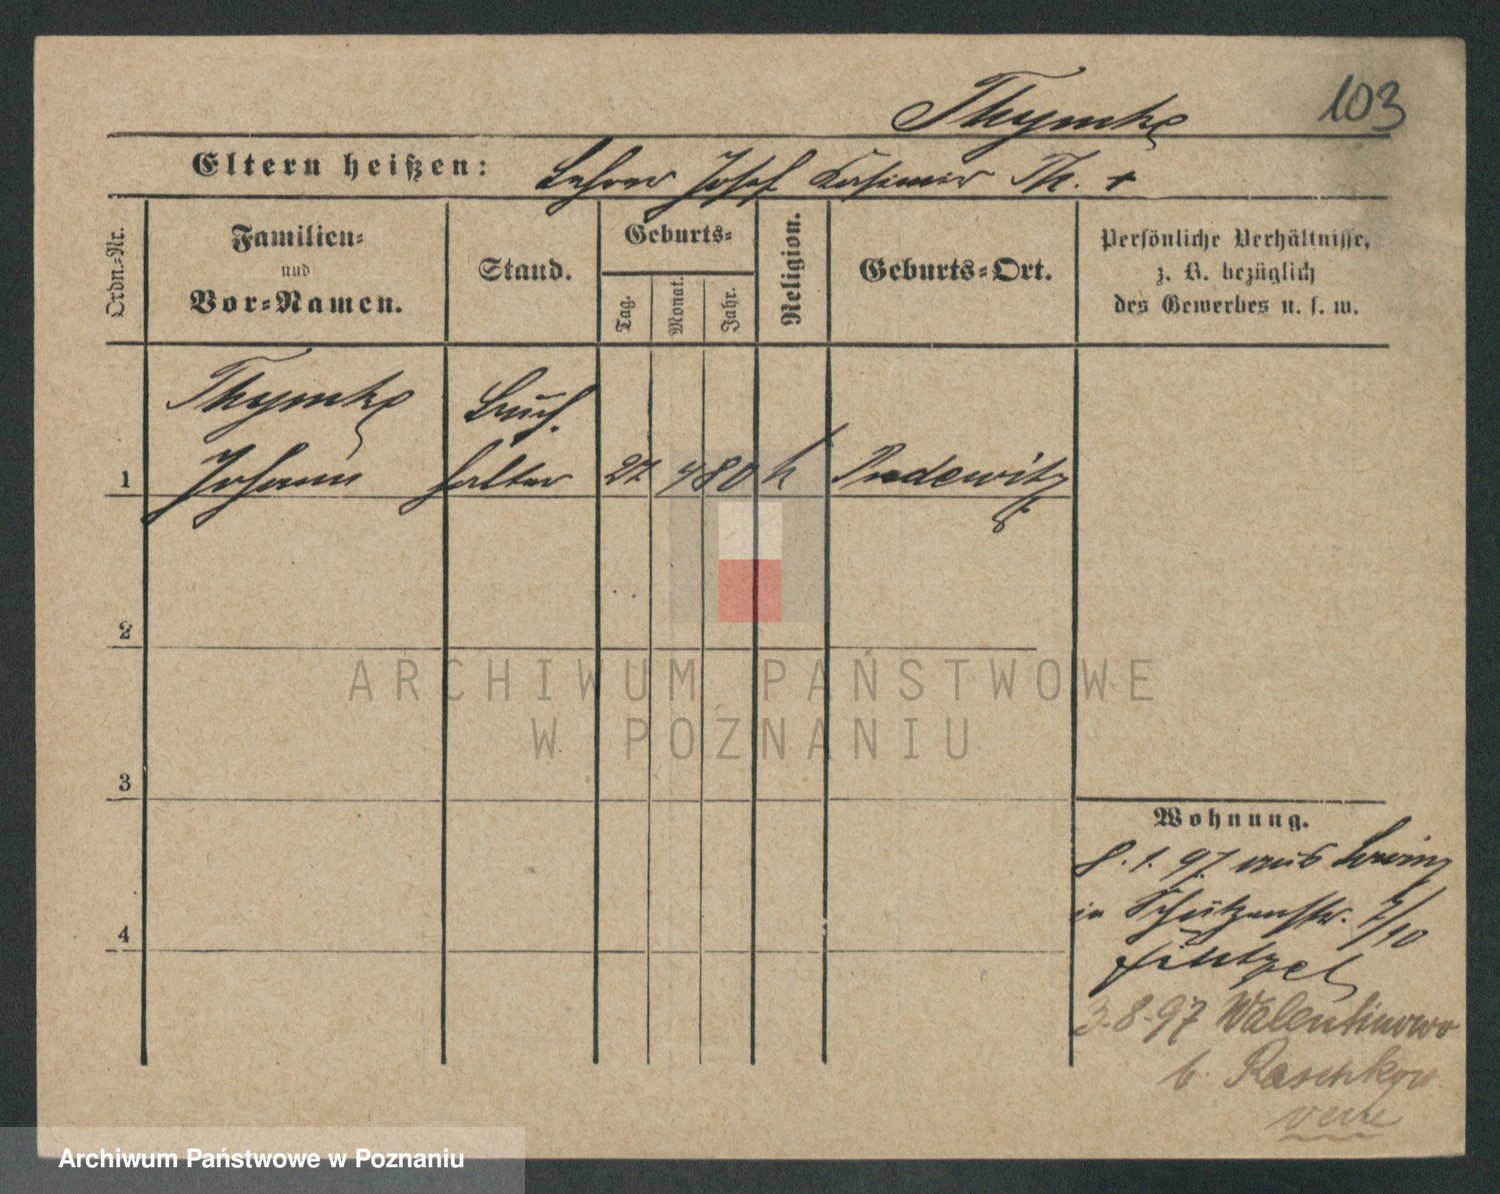 103
Thymke
Eltern heißen: Lehrer Josef Kasimir Th. +
Ordn.-Nr.
Familien-
und
Vor-Namen.
Stand.
Geburts-
Tag.
Monat.
Jahr.
Religion.
Geburts-Ort.
Persönliche Verhältnisse,
z. B. bezüglich
des Gewerbes u. s. w.
Thymke Buch.
1 Johann halter 27 4 80 k Pudewitz
2
3
4
Wohnung.
8.1.97 aus
in Schützenstr. 7/10
3.8.97 Walentinowo
b. Raschkow
verte
ARCHIWUM PAŃSTWOWE
W POZNANIU
Archiwum Państwowe w Poznaniu